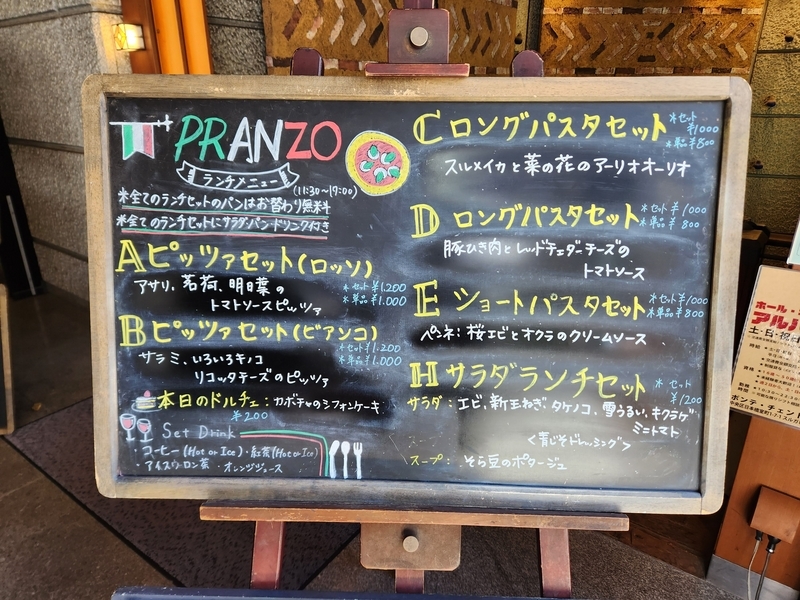 PRANZO
ランチメニュー
(11:30~19:00)
*全てのランチセットのパンはお替わり無料
*全てのランチセットにサラダ・パン・ドリンク付き
A ピッツァセット(ロッソ)
アサリ、茗荷、明日葉の
トマトソースピッツァ
*セット¥1.200
*単品¥1.000
B ピッツァセット(ビアンコ)
*セット¥1.200
*単品¥1.000
サラミ、いろいろキノコ
リコッタチーズのピッツァ
本日のドルチェ:カボチャのシフォンケーキ
¥200
Set Drink
・コーヒー(Hot or Ice)・紅茶(Hot or Ice)
・アイスウーロン茶・オレンジジュース
C ロングパスタセット
*セット
¥1000
*単品¥800
スルメイカと菜の花のアーリオオーリオ
D ロングパスタセット
*セット¥1000
*単品¥800
豚ひき肉とレッドチェダーチーズの
トマトソース
E ショートパスタセット
*セット¥1000
*単品¥800
ペンネ:桜エビとオクラのクリームソース
H サラダランチセット
*セット
¥1200
サラダ:エビ、新玉ねぎ、タケノコ、雪うるい、キクラゲ
ミニトマト
<青じそドレッシング>
スープ:そら豆のポタージュ
ホール・
アルバ
土・日・祝日